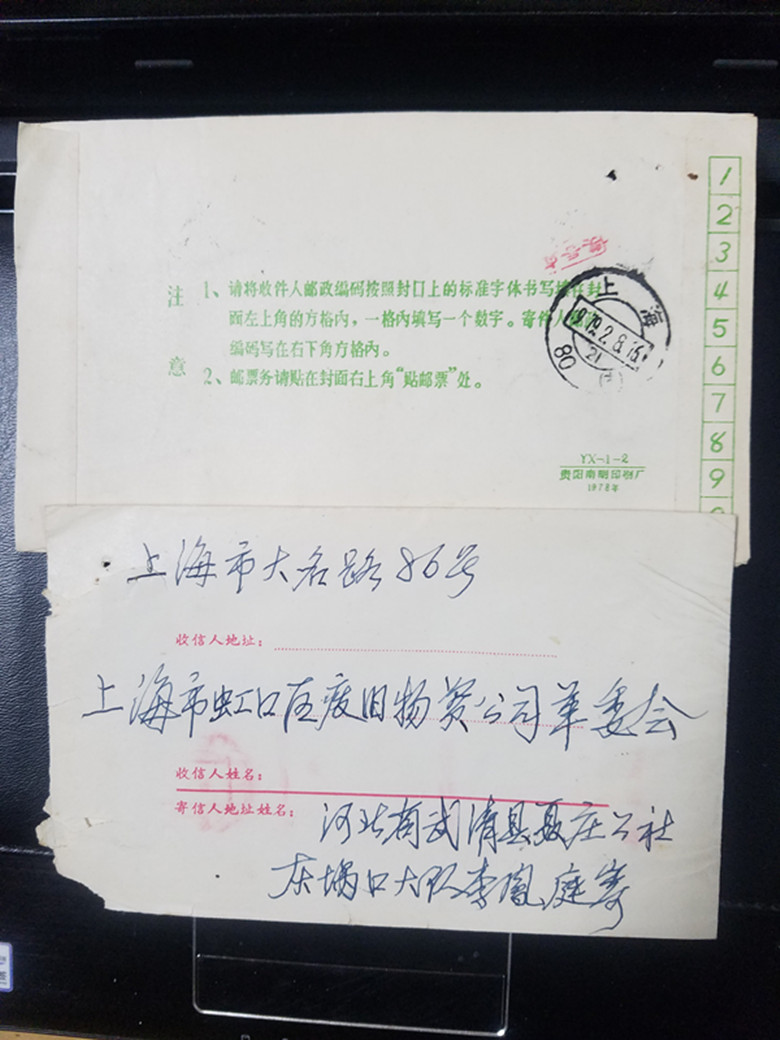 注意
1、请将收件人邮政编码按照封口上的标准字体书写填在封
面左上角的方格内，一格内填写一个数字。寄件人邮政
编码写在右下角方格内。
2、邮票务请贴在封面右上角“贴邮票”处。
上海
1979.2.8.16
80
YX-1-2
贵阳南明印刷厂
1978年
1
2
3
4
5
6
7
8
9
上海市大名路86号
收信人地址：
上海市虹口区废旧物资公司革委会
收信人姓名：
寄信人地址姓名：
河北省武清县聂庄公社
东埚口大队李凤庭寄